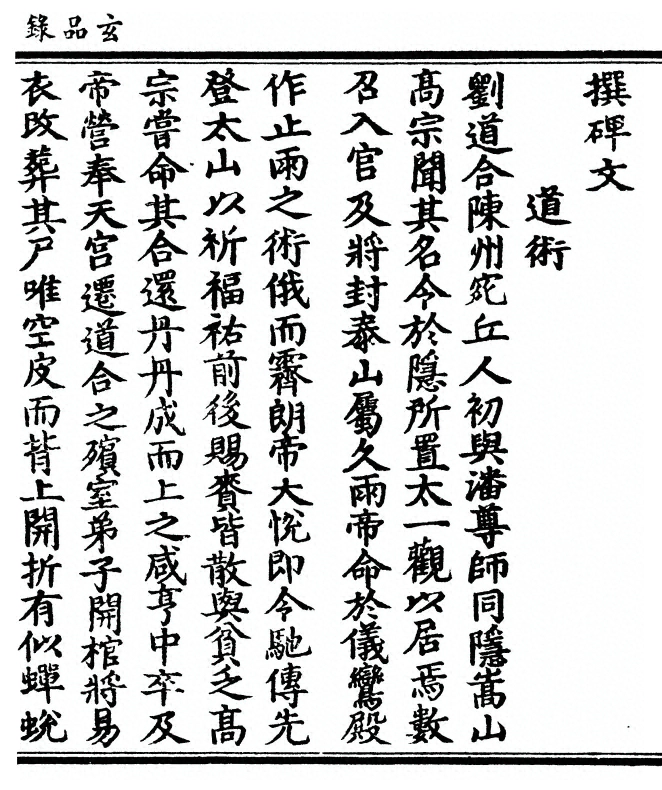 玄品錄
撰碑文
道術
劉道合陳州宛丘人初與潘尊師同隱嵩山
髙宗聞其名令於隱所置太一觀以居焉數
召入宮及將封泰山屬久雨帝命於儀鸞殿
作止雨之術俄而霽朗帝大悅即令馳傳先
登太山以祈福祐前後賜賚皆散與貧乏髙
宗嘗命其合還丹丹成而上之咸亨中卒及
帝營奉天宫遷道合之殯室弟子開棺將易
衣改葬其尸唯空皮而背上開折有似蟬蛻